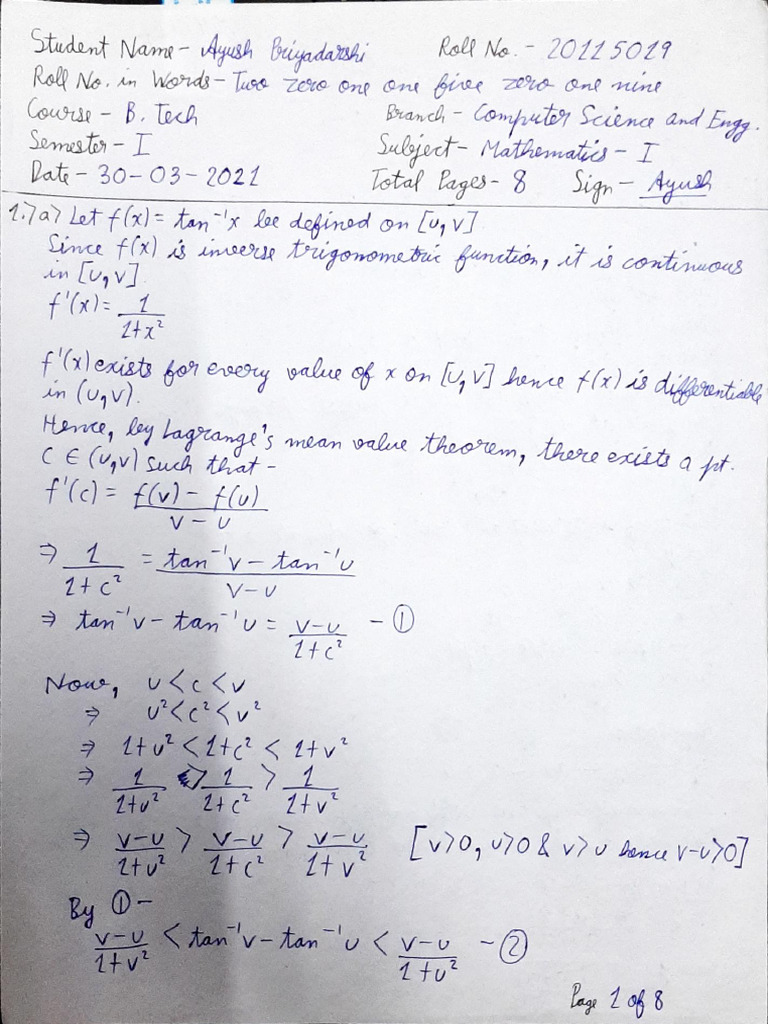 Student Name - Ayush Priyadarshi Roll No. - 20115019
Roll No. in Words - Two zero one one five zero one nine
Course - B. Tech Branch - Computer Science and Engg.
Semester - I Subject - Mathematics - I
Date - 30-03-2021 Total Pages - 8 Sign - Ayush
1.7a> Let f(x) = tan⁻¹x be defined on [u, v]
Since f(x) is inverse trigonometric function, it is continuous
in [u, v]
f'(x) = 1/(1+x²)
f'(x) exists for every value of x on [u, v] hence f(x) is differentiable
in (u, v).
Hence, by Lagrange's mean value theorem, there exists a pt.
C ∈ (u, v) such that -
f'(c) = (f(v) - f(u))/(v - u)
⇒ 1/(1+c²) = (tan⁻¹v - tan⁻¹u)/(v-u)
⇒ tan⁻¹v - tan⁻¹u = (v-u)/(1+c²) - ①
Now, u < c < v
⇒ u² < c² < v²
⇒ 1+u² < 1+c² < 1+v²
⇒ 1/(1+u²) > 1/(1+c²) > 1/(1+v²)
⇒ (v-u)/(1+u²) > (v-u)/(1+c²) > (v-u)/(1+v²) [v>0, u>0 & v>u hence v-u>0]
By ① -
(v-u)/(1+v²) < tan⁻¹v - tan⁻¹u < (v-u)/(1+u²) - ②
Page 1 of 8